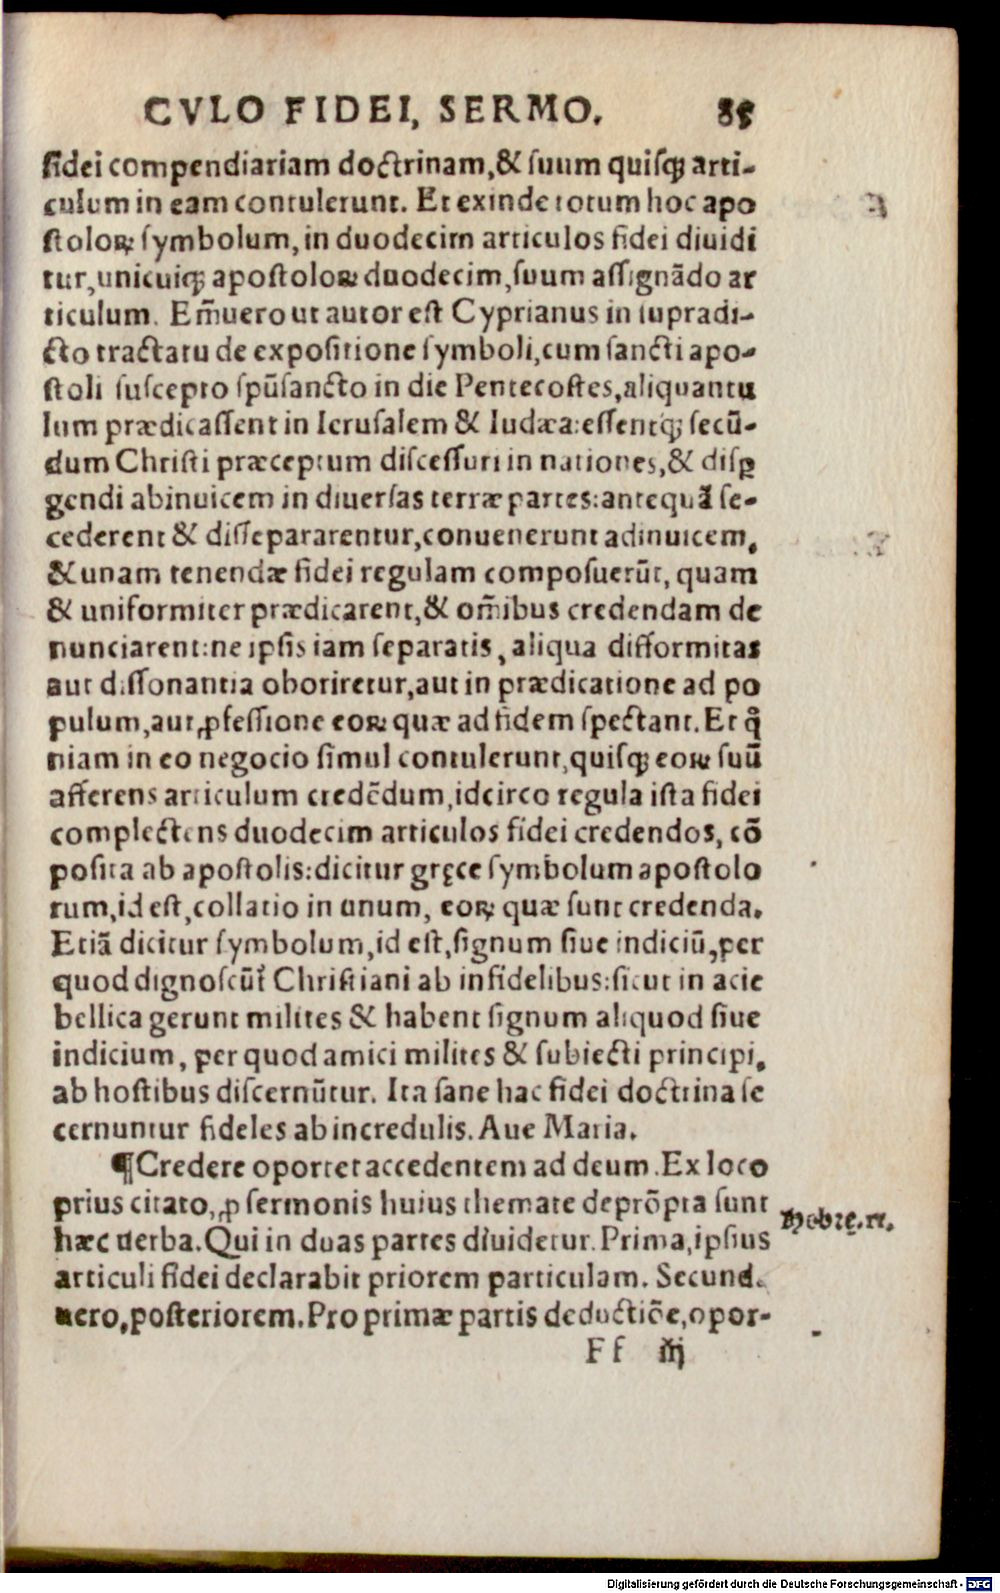 CVLO FIDEI, SERMO. 85
fidei compendiariam doctrinam,& suum quisqꝫ arti-
culum in eam contulerunt. Et exinde totum hoc apo
stoloꝝ symbolum, in duodecim articulos fidei diuidi
tur,unicuiqꝫ apostoloꝝ duodecim,suum assignādo ar
ticulum. Em̃uero ut autor est Cyprianus in supradi-
cto tractatu de expositione symboli,cum sancti apo-
stoli suscepto spūsancto in die Pentecostes,aliquantu
lum prædicassent in Ierusalem & Iudæa:essentqꝫ secū-
dum Christi præceptum discessuri in nationes,& disꝑ
gendi abinuicem in diuersas terræ partes:antequã se-
cederent & disseparentur,conuenerunt adinuicem,
& unam tenendæ fidei regulam composuerūt, quam
& uniformiter prædicarent,& om̃ibus credendam de
nunciarent:ne ipsis iam separatis, aliqua difformitas
aut dissonantia oboriretur,aut in prædicatione ad po
pulum,aut ꝓfessione eoꝝ quæ ad fidem spectant. Et qͦ
niam in eo negocio simul contulerunt,quisqꝫ eoꝝ suū
afferens articulum credēdum,idcirco regula ista fidei
complectens duodecim articulos fidei credendos, cō
posita ab apostolis:dicitur gręce symbolum apostolo
rum,id est,collatio in unum, eoꝝ quæ sunt credenda.
Etiā dicitur symbolum,id est,signum siue indiciū,per
quod dignoscūt᷑ Christiani ab infidelibus:sicut in acie
bellica gerunt milites & habent signum aliquod siue
indicium, per quod amici milites & subiecti principi,
ab hostibus discernūtur. Ita sane hac fidei doctrina se
cernuntur fideles ab incredulis. Aue Maria.
¶Credere oportet accedentem ad deum. Ex loco
prius citato,ꝓ sermonis huius themate deprōpta sunt
hæc uerba. Qui in duas partes diuidetur. Prima,ipsius
articuli fidei declarabit priorem particulam. Secund.
uero,posteriorem. Pro primæ partis deductiōe,opor-
Hebrę.11.
Ff iij